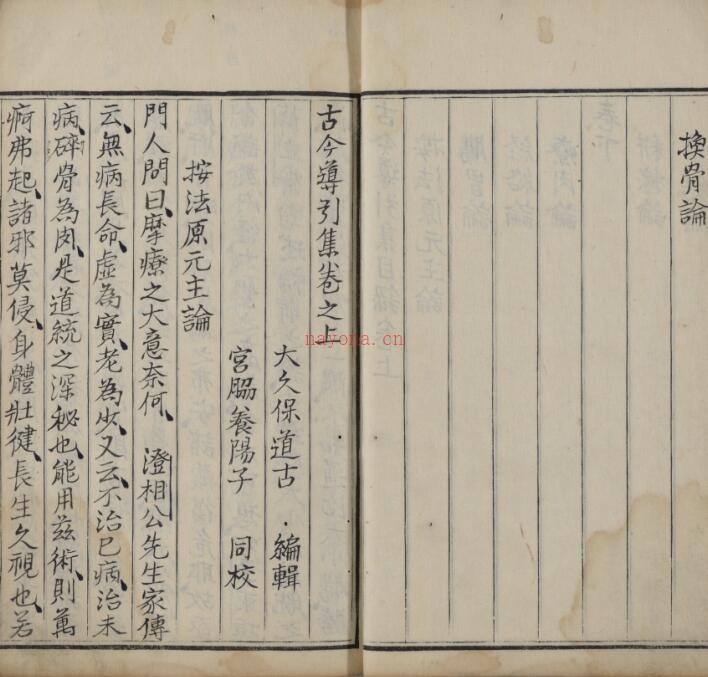 換骨論
古今導引集卷之上
大久保道古 ・編輯
宮脇養陽子 同校
按法原元主論
門人問曰、摩療之大意奈何、 澄相公先生家傳
云、無病長命、虛為實、老為少、又云、不治已病、治未
病、碎骨為肉、是道統之深秘也、能用兹術、則萬
疴弗起、諸邪莫侵、身體壯健、長生久視也、若
nayona.cn